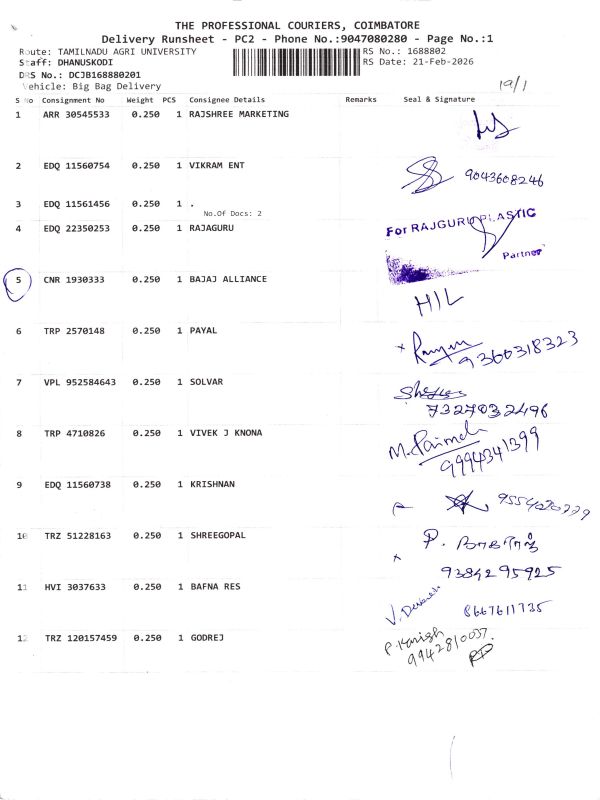 THE PROFESSIONAL COURIERS, COIMBATORE
Delivery Runsheet - PC2 - Phone No.:9047080280 - Page No.:1
Route: TAMILNADU AGRI UNIVERSITY
RS No.: 1688802
Staff: DHANUSKODI
RS Date: 21-Feb-2026
DRS No.: DCJB168880201
Vehicle: Big Bag Delivery
19/1
S No Consignment No Weight PCS Consignee Details Remarks Seal & Signature
1 ARR 30545533 0.250 1 RAJSHREE MARKETING
2 EDQ 11560754 0.250 1 VIKRAM ENT
9043608246
3 EDQ 11561456 0.250 1 .
No.Of Docs: 2
4 EDQ 22350253 0.250 1 RAJAGURU
For RAJGURU PLASTIC
Partner
5 CNR 1930333 0.250 1 BAJAJ ALLIANCE
HIL
6 TRP 2570148 0.250 1 PAYAL
9360318323
7 VPL 952584643 0.250 1 SOLVAR
7327032496
8 TRP 4710826 0.250 1 VIVEK J KNONA
9994341399
9 EDQ 11560738 0.250 1 KRISHNAN
10 TRZ 51228163 0.250 1 SHREEGOPAL
P.
9384295925
11 HVI 3037633 0.250 1 BAFNA RES
8667611735
12 TRZ 120157459 0.250 1 GODREJ